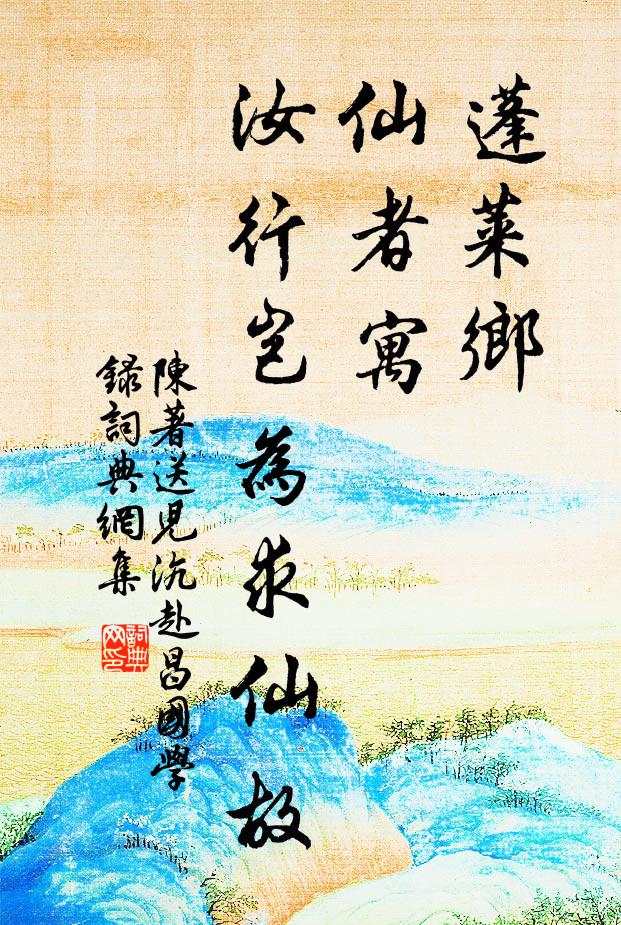 蓬萊鄉
仙者寓
汝行豈為求仙故
陳著送兒沆赴昌國學
錄詞典網集
詞典网印